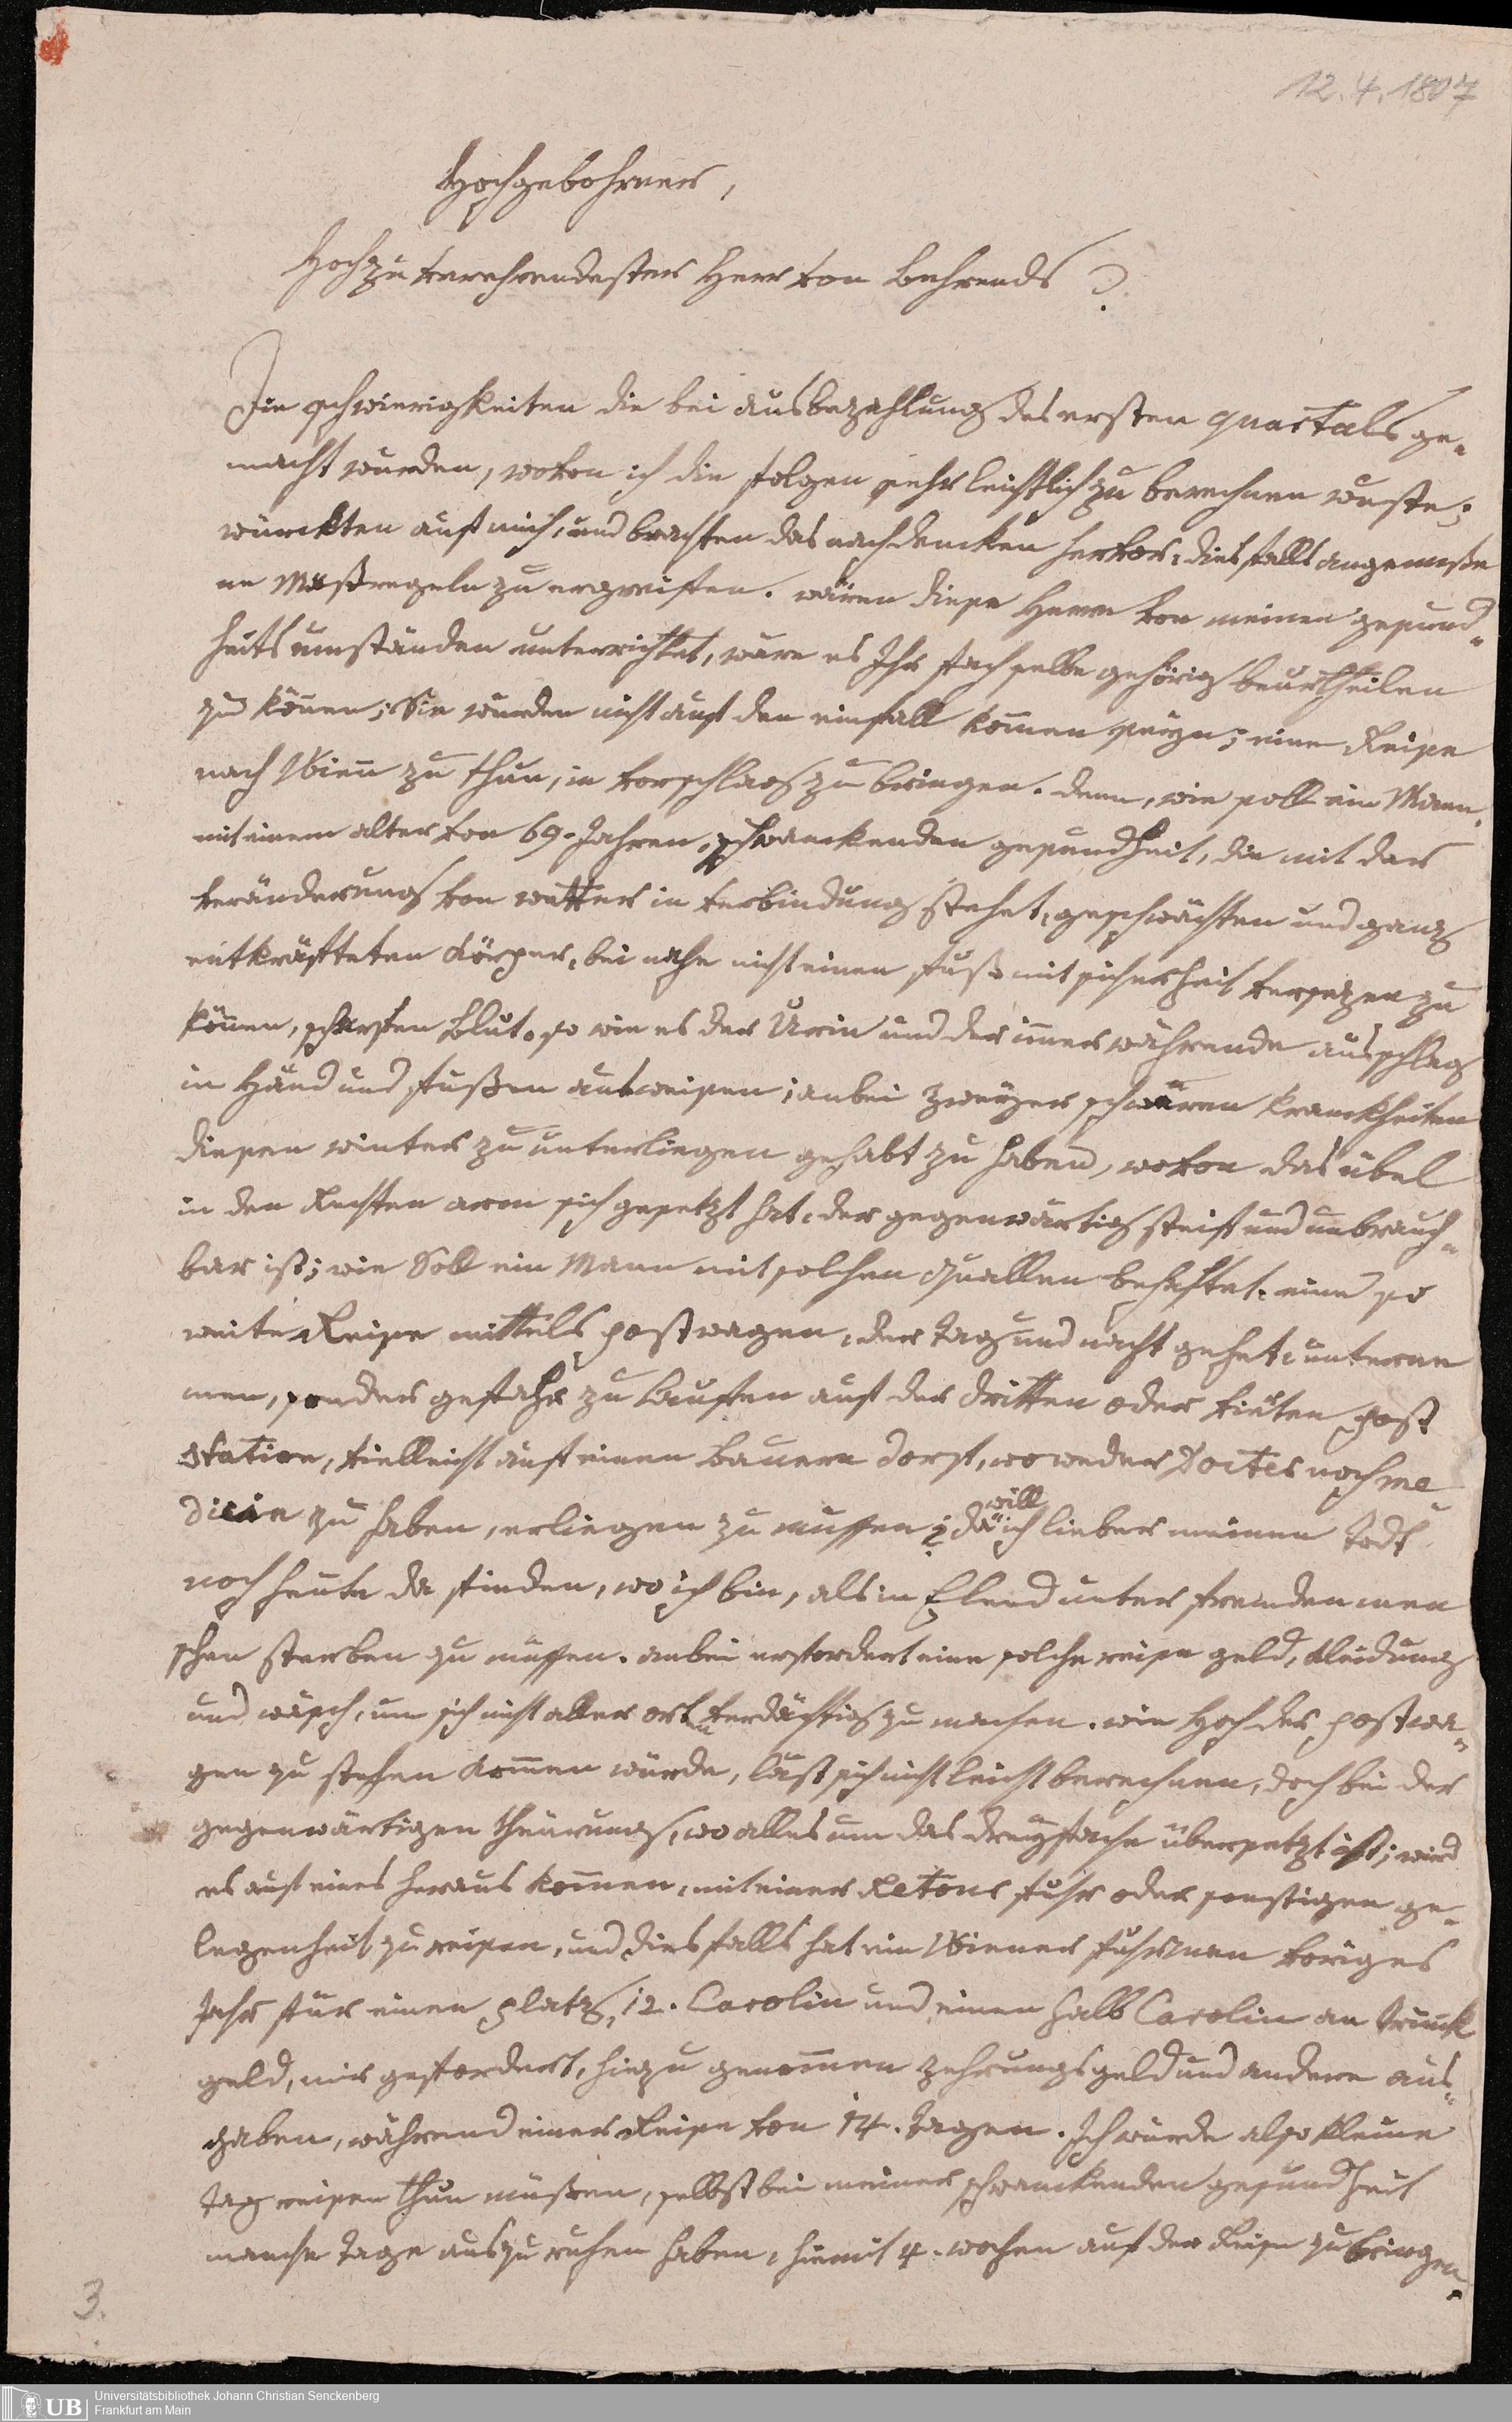 12.4.1807
Hochgebohrner,
Hochzu verehrendester Herr von Behrends
Die schwierigkeiten die bei ausbezahlung des ersten quartals ge-
macht wurden, wovon ich die folgen sehr leichtlich zu berechnen wuste;
würckten auf mich, und brachten das nachdencken hervor, diesfalls angemeße
ne Maßregeln zu ergreiffen. wären diese Herrn von meinen gesund-
heits umständen unterrichtet, wäre es Ihr fach selbe gehörig beurtheilen
zu können; Sie wurden nicht auf den einfall kommen seyn; eine Reise
nach Wienn zu thun, in vorschlag zu bringen. denn, wie soll ein Mann,
mit einem alter von 69. Jahren, schwanckenden gesundheit, die mit der
veränderung von wetter in verbindung stehet, geschwächten und ganz
entkräfteten Körper, bei nahe nicht einen fuß mit sicherheit versezen zu
können, scharfen Blut, so wie es der Urin und der immer währende ausschlag
in Händ und fußen ausweisen; anbei zweyer schwären kranckheiten
diesen winter zu unterliegen gehabt zu haben, wovon das übel
in den Rechten arm sich gesetzt hat, der gegenwärtig steif und unbrauch-
bar ist; wie Soll ein Mann mit solchen Quallen behaftet, eine so
weite Reise mittels postwagen, der tag und nacht gehet, unterne
men, sonder gefahr zu lauffen auf der dritten oder vierten post
station, vielleicht auf einen Bauern dorf, wo weder Docter noch me
dicin zu haben, erliegen zu mussen; da will ich lieber meinen Todt
noch heute da finden, wo ich bin, als in Elend unter fremden men
schen sterben zu müssen. anbei erfordert eine solche reise geld, kleidung
und wäsch, um sich nicht aller orten verdächtig zu machen. wie Hoch der postwa-
gen zu stehen kommen würde, läst sich nicht leicht berechnen, doch bei der
gegenwärtigen theürung, wo alles um das dreyfache übersetzt ist; wird
es auf eines heraus kommen, mit einer Retour fuhr oder sonstigen ge-
legenheit zu reisen, und diesfalls hat ein Wiener fuhrman voriges
Jahr für einen platz, 12. Carolin und einen halb Carolin an trinck
geld, mir gefordert, hiezu genommen zehrungsgeld und andere aus-
gaben, während einer Reise von 14. tagen. Ich wurde also kleine
tag reisen thun müßen, selbst bei meiner schwanckenden gesundheit
manche tage auszuruhen haben, hiemit 4. wochen auf der Reise zubringen.
3.
UB
Universitätsbibliothek Johann Christian Senckenberg
Frankfurt am Main